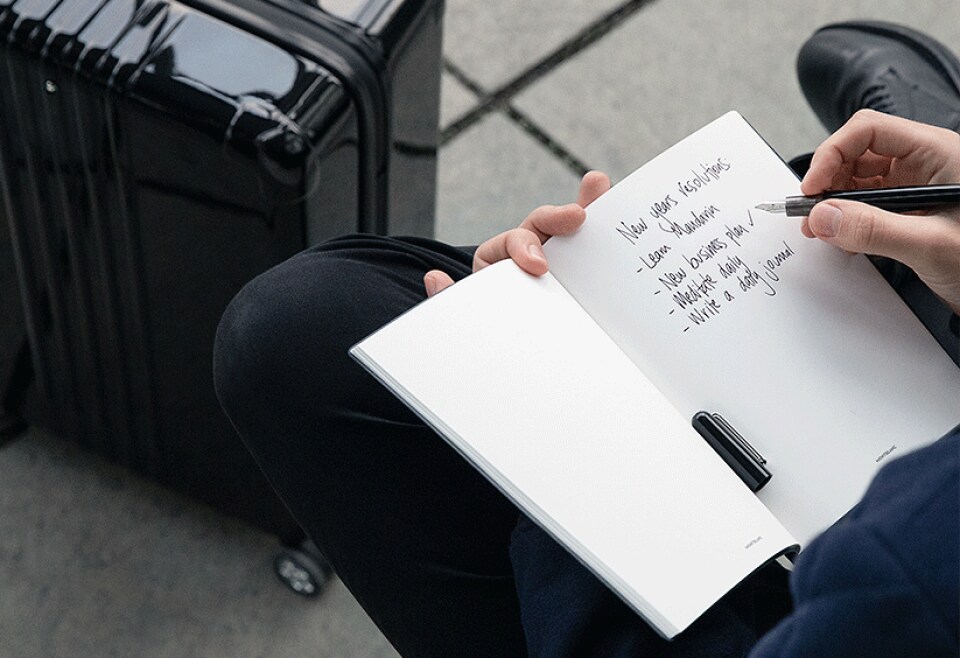 New years resolutions
- Learn Mandarin
- New business plan ✓
- Meditate daily
- Write a daily journal
MONTBLANC
MONTBLANC